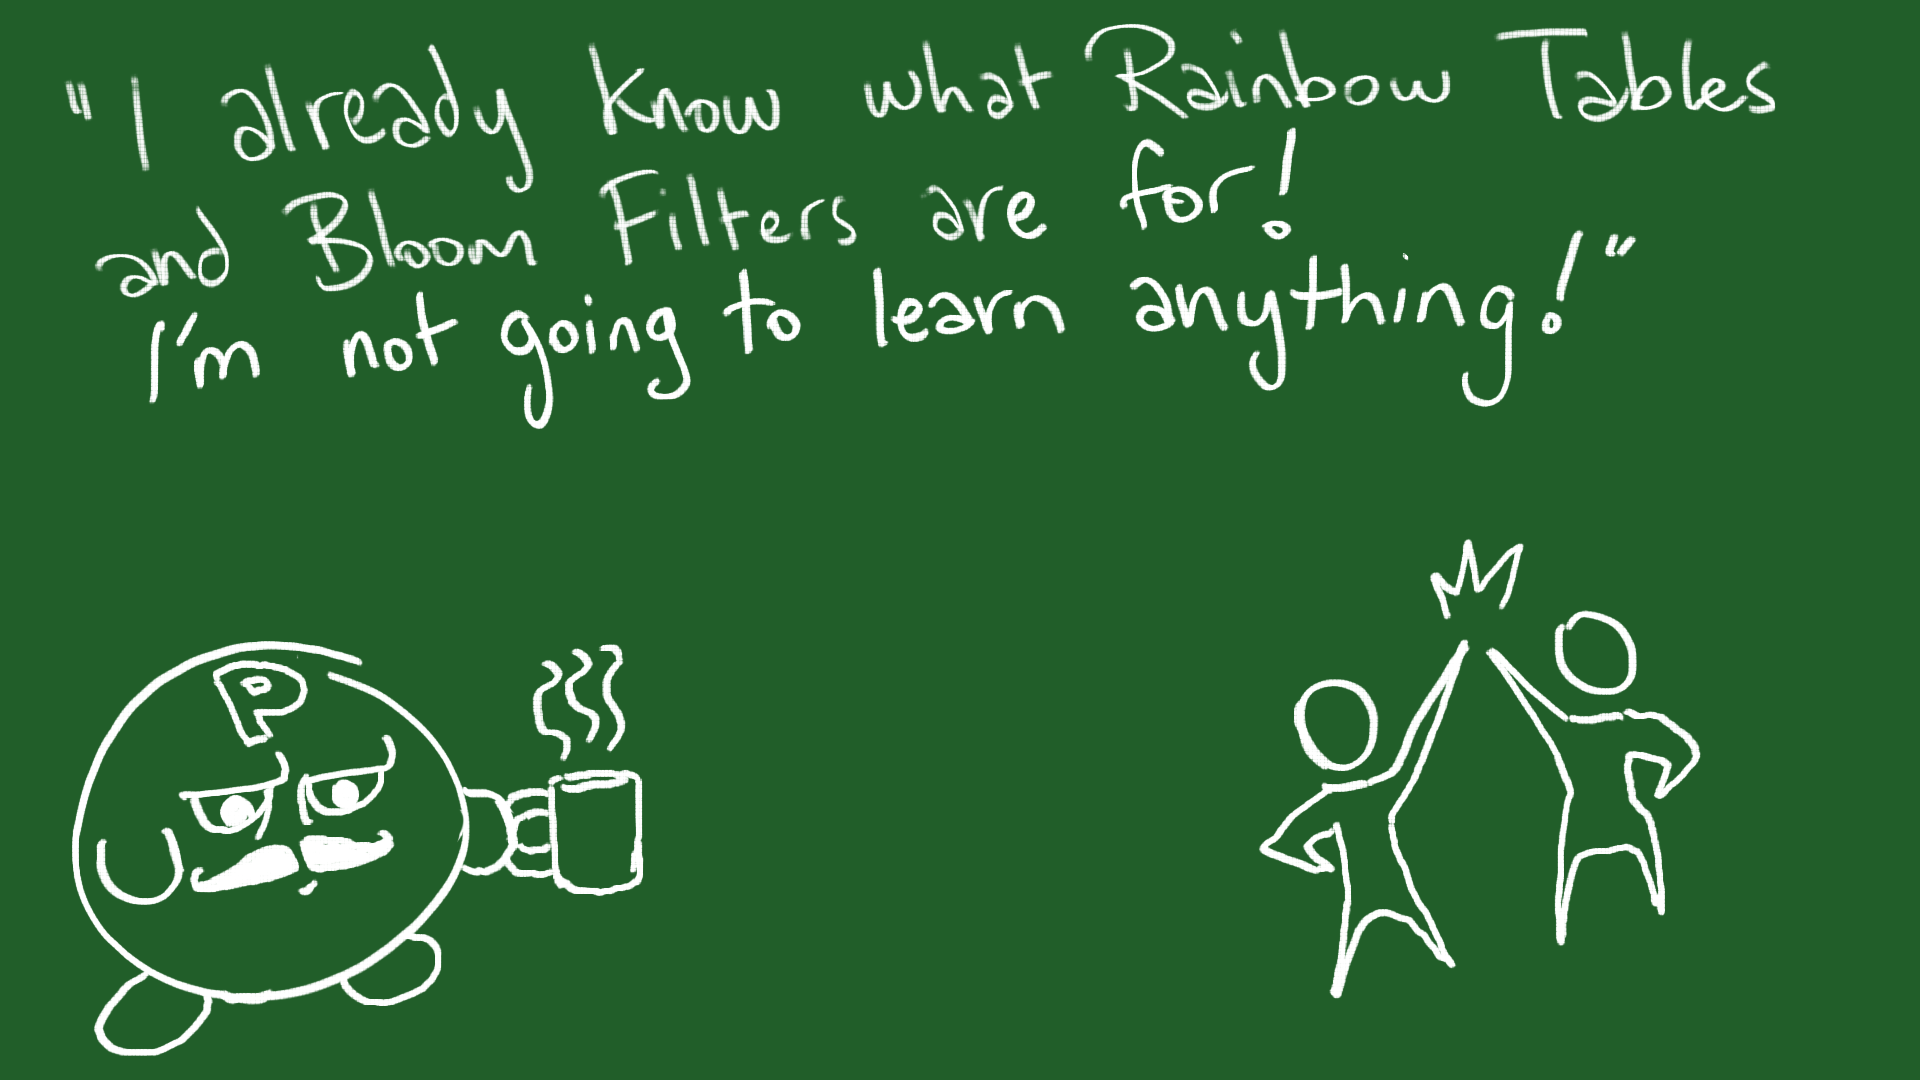 "I already know what Rainbow Tables
and Bloom Filters are for!
I'm not going to learn anything!"
P